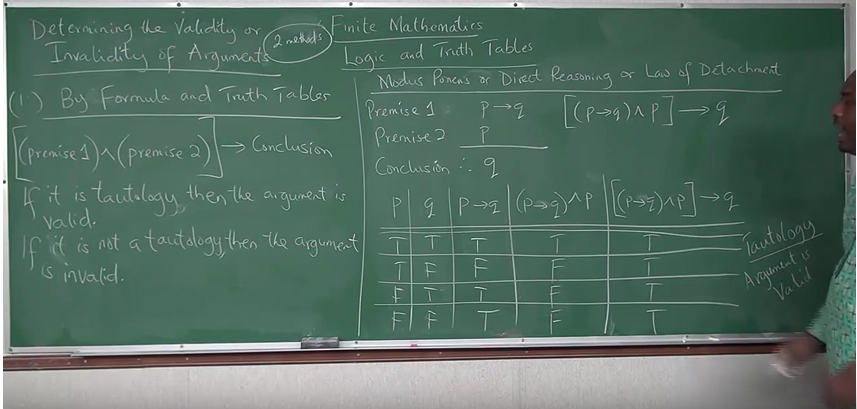 Determining the Validity or
Invalidity of Arguments
2 methods
(1) By Formula and Truth Tables
[(premise 1) ∧ (premise 2)] → Conclusion
If it is tautology then the argument is
valid.
If it is not a tautology, then the argument
is invalid.
Finite Mathematics
Logic and Truth Tables
Modus Ponens or Direct Reasoning or Law of Detachment
Premise 1 p→q [(p→q) ∧ p] → q
Premise 2 p
Conclusion ∴ q
p q p→q (p→q)∧p [(p→q)∧p] → q
T T T T T
T F F F T
F T T F T
F F T F T
Tautology
Argument is
Valid